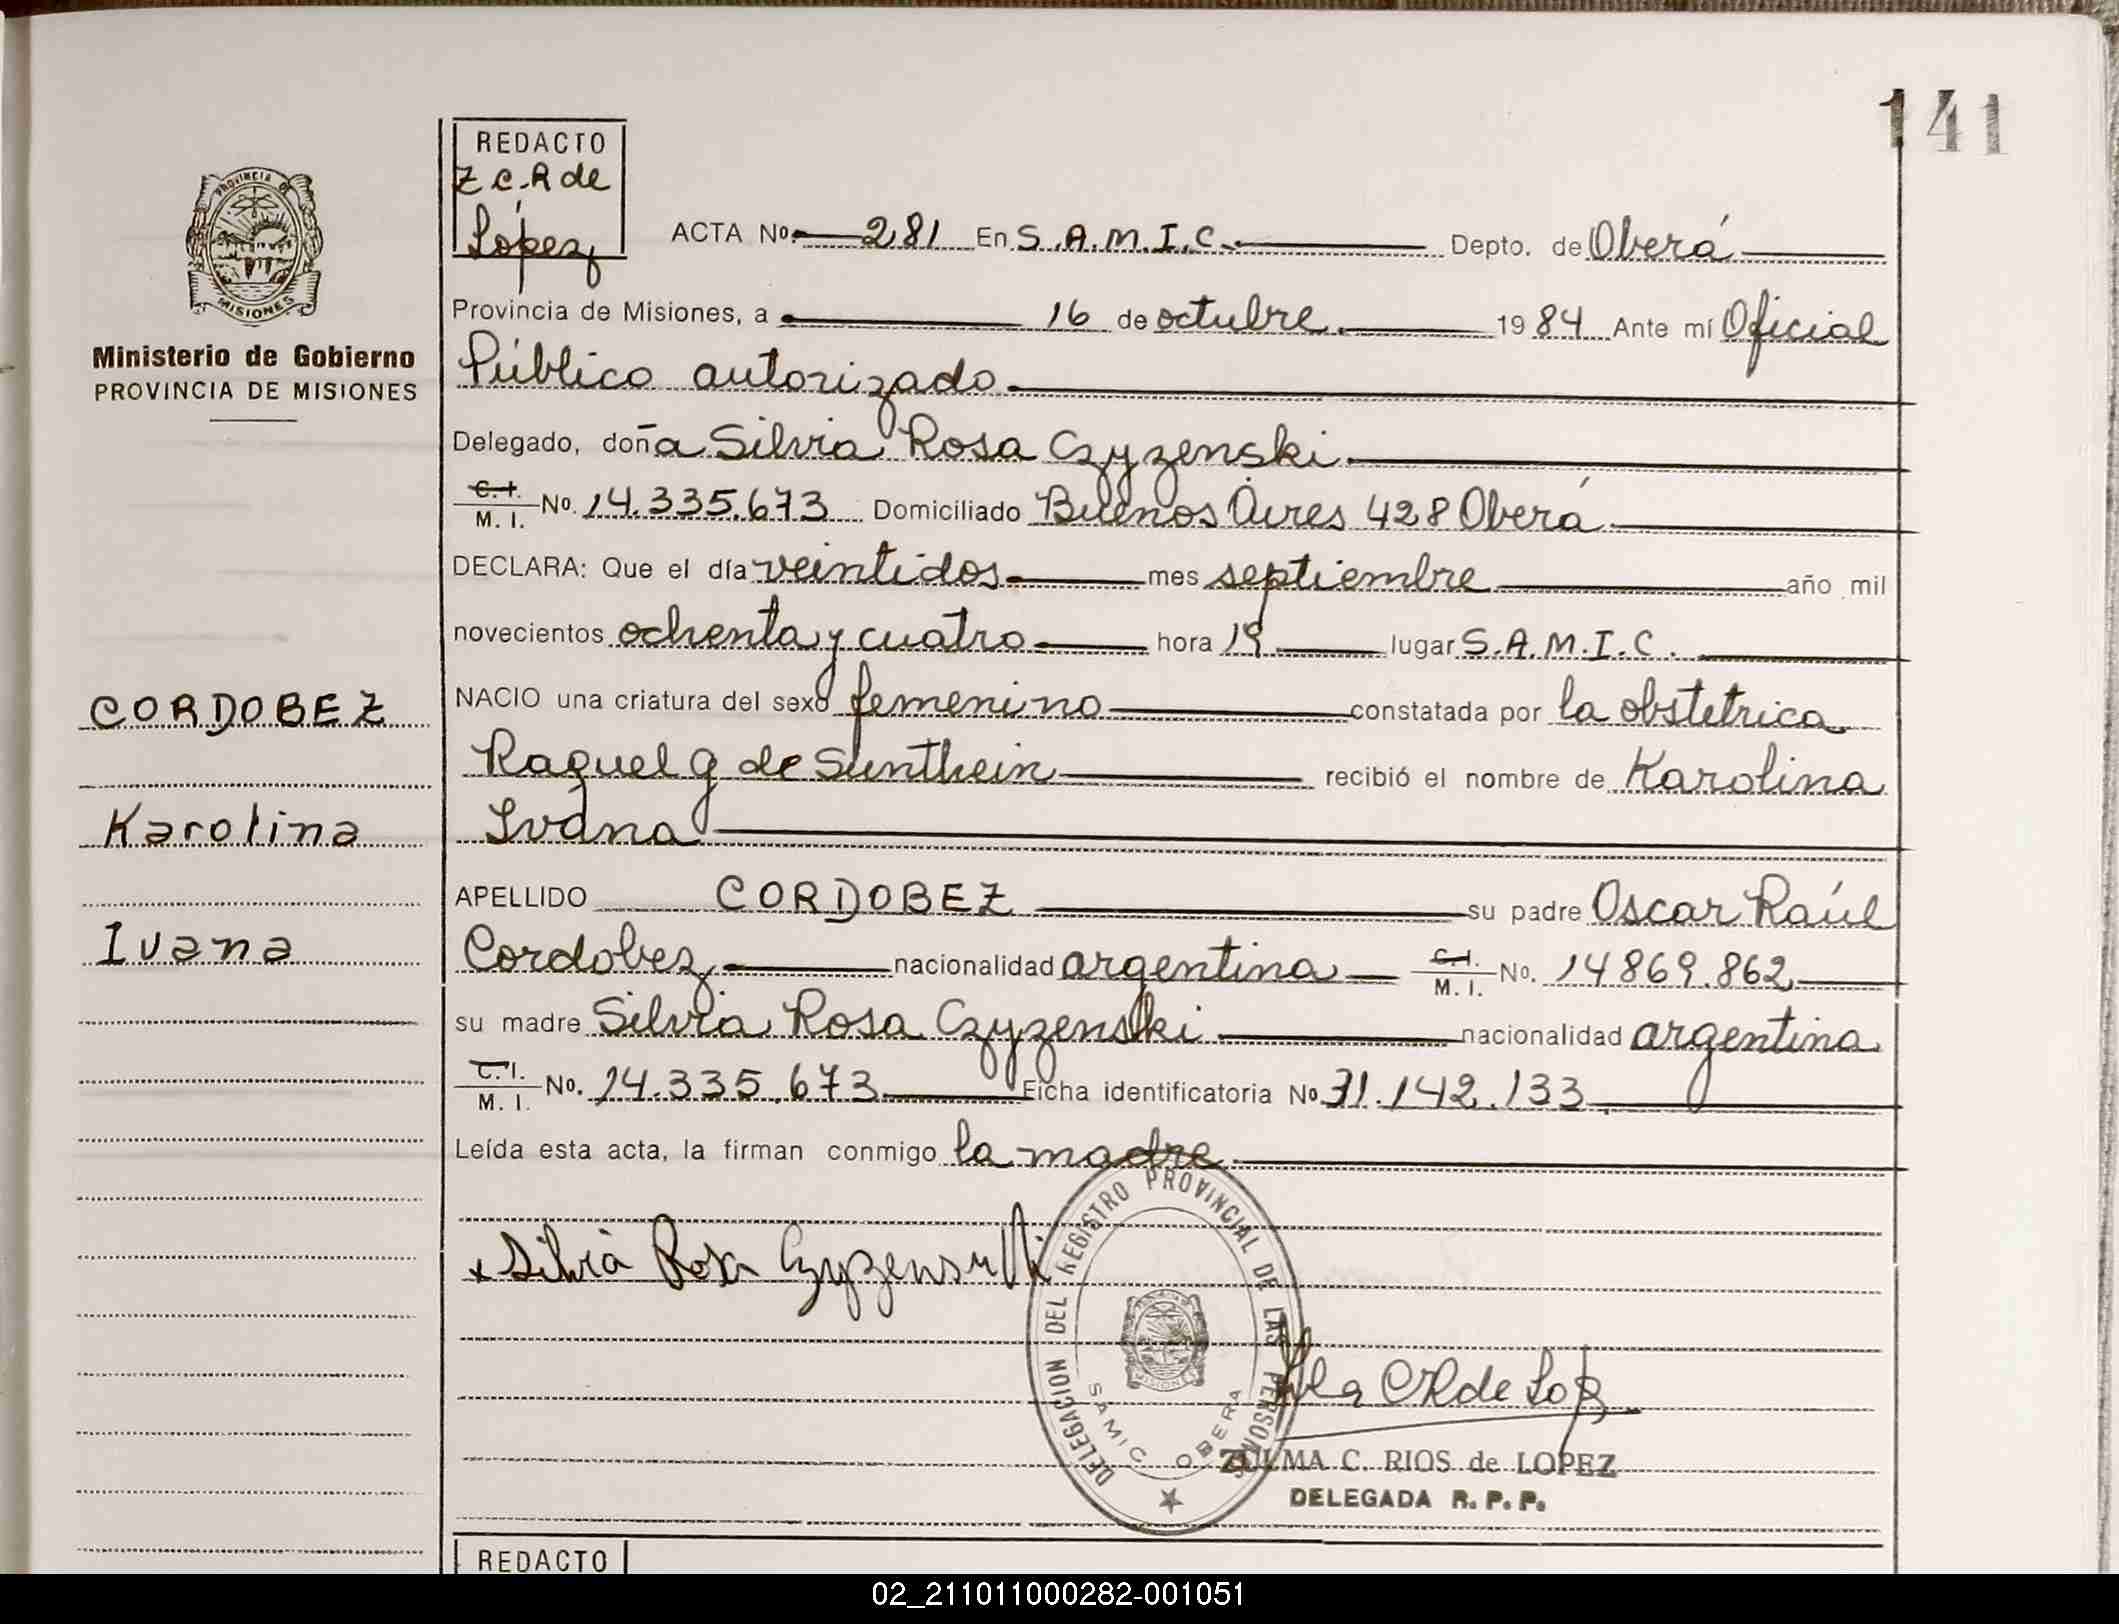 141
REDACTO
Z C. R de
López
ACTA Nº. 281 En S.A.M.I.C. Depto. de Oberá
Provincia de Misiones, a 16 de octubre 1984 Ante mí Oficial
Público autorizado
Delegado, doña Silvia Rosa Czyzenski
C.I. M.I. No. 14.335.673 Domiciliado Buenos Aires 428 Oberá
DECLARA: Que el día veintidos mes septiembre año mil
novecientos ochenta y cuatro hora 19 lugar S.A.M.I.C.
NACIO una criatura del sexo femenino constatada por la obstetrica
Raquel G de Sunthein recibió el nombre de Karolina
Ivana
APELLIDO CORDOBEZ su padre Oscar Raúl
Cordobez nacionalidad argentina C.I. M.I. No. 14869.862
su madre Silvia Rosa Czyzenski nacionalidad argentina
C.I. M.I. No. 14.335.673 Ficha identificatoria No 31.142.133
Leída esta acta, la firman conmigo la madre
PROVINCIA DE
MISIONES
Ministerio de Gobierno
PROVINCIA DE MISIONES
CORDOBEZ
Karolina
Ivana
x Silvia Rosa Czyzenski
DELEGACION DEL REGISTRO PROVINCIAL DE LAS PERSONAS
SAMIC OBERA
MISIONES
C R de López
ZULMA C. RIOS de LOPEZ
DELEGADA R. P. P.
REDACTO
02_211011000282-001051